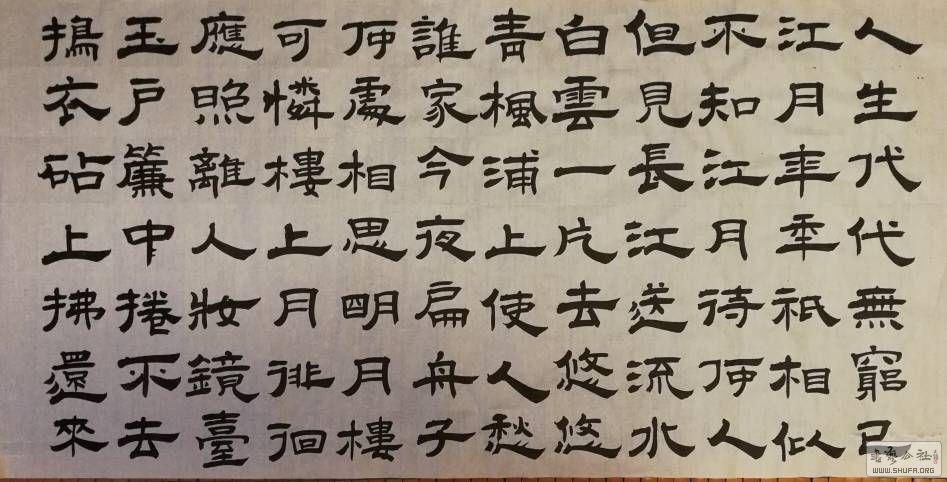 人生代代無窮已
江月年年祇相似
不知江月待何人
但見長江送流水
白雲一片去悠悠
青楓浦上使人愁
誰家今夜扁舟子
何處相思明月樓
可憐樓上月徘徊
應照離人妝鏡臺
玉戶簾中捲不去
搗衣砧上拂還來
WWW.SHUFA.ORG